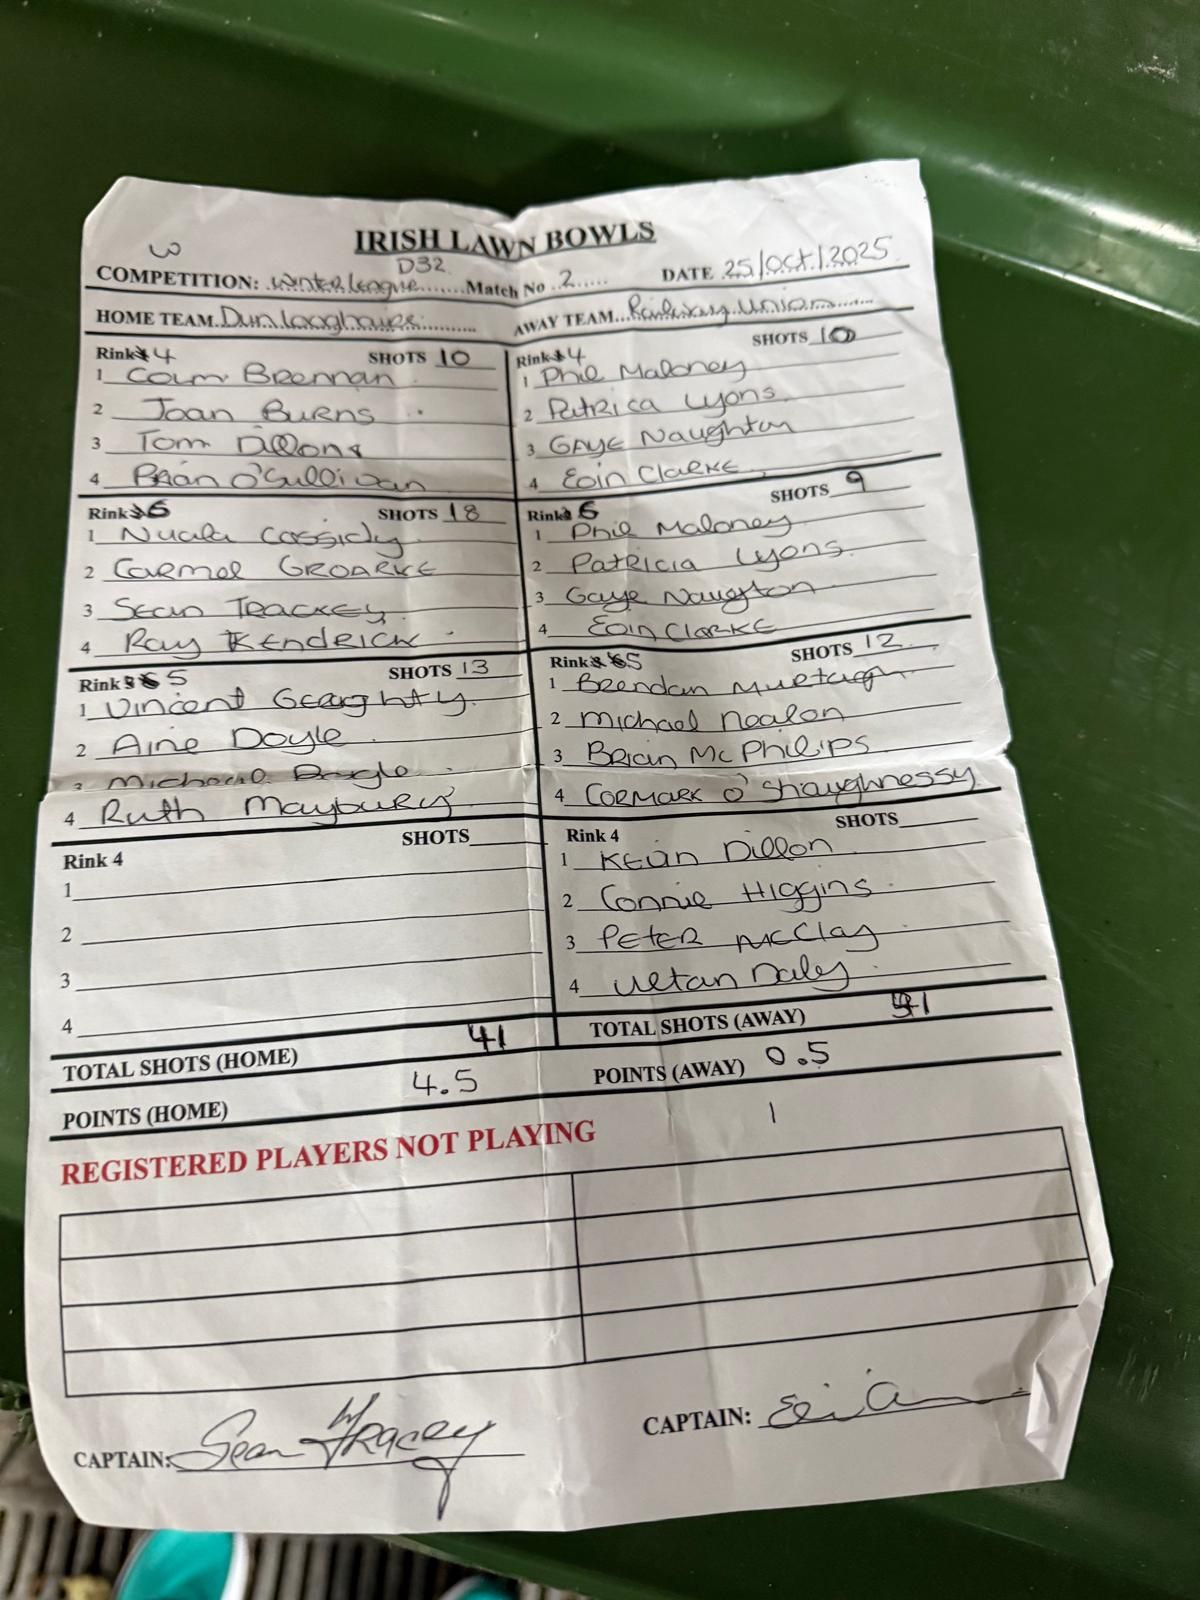 IRISH LAWN BOWLS
3
D32
COMPETITION: Winter League Match No 2 DATE 25/Oct/2025
HOME TEAM Dun Laoghaire AWAY TEAM Railway Union
Rink 4 SHOTS 10
1 Colm Brennan
2 Joan Burns
3 Tom Dillon
4 Brian O'Sullivan
Rink 4 SHOTS 10
1 Phil Maloney
2 Patrica Lyons
3 Gaye Naughton
4 Eoin Clarke
Rink 6 SHOTS 18
1 Nuala Cassidy
2 Carmel GROARKE
3 Sean TRACKEY
4 Ray Kendrick
Rink 6 SHOTS 9
1 Phil Maloney
2 Patricia Lyons
3 Gaye Naugton
4 Eoin CLARKE
Rink 5 SHOTS 13
1 Vincent Geraghty
2 Aine Doyle
3 Michael
4 Ruth Maybury
Rink 5 SHOTS 12
1 Brendan Murtagh
2 Michael Nealon
3 Brian McPhilips
4 CORMARK O'Shaughnessy
Rink 4 SHOTS
1
2
3
4
Rink 4 SHOTS
1 Kevin Dillon
2 Connie Higgins
3 Peter McClay
4 Ultan Daley
TOTAL SHOTS (HOME) 41 TOTAL SHOTS (AWAY) 31
POINTS (HOME) 4.5 POINTS (AWAY) 0.5
1
REGISTERED PLAYERS NOT PLAYING
CAPTAIN: Sean Tracey CAPTAIN: